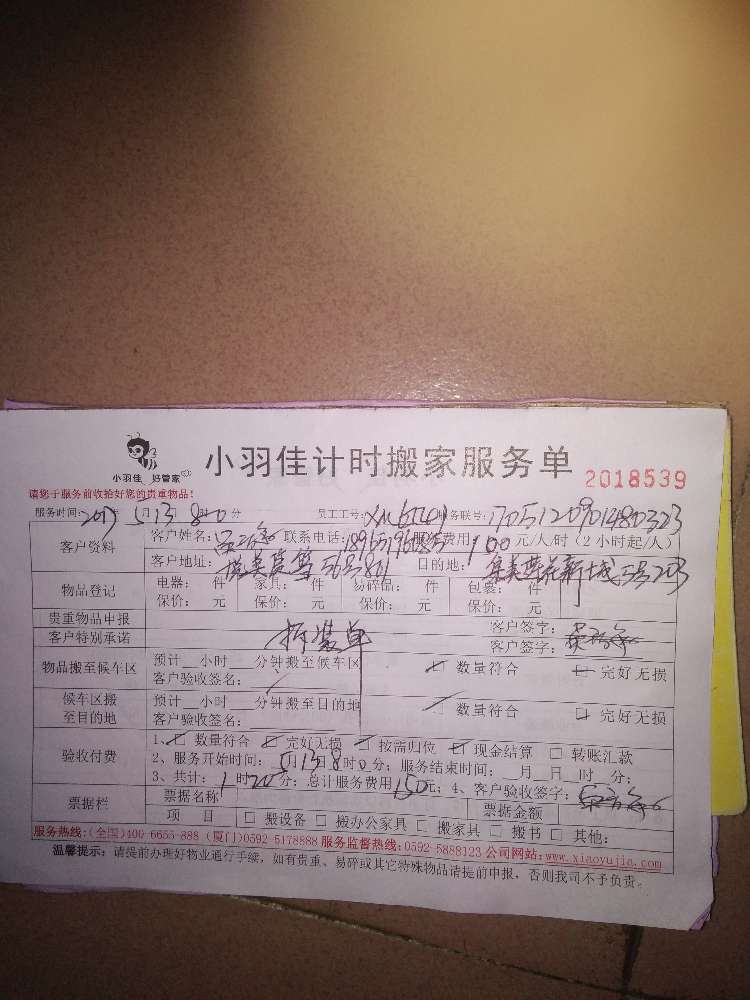 小羽佳 好管家
小羽佳计时搬家服务单 2018539
请您于服务前收拾好您的贵重物品!
服务时间:2017年5月13日8时0分 员工工号: 服务联号:
客户资料 客户姓名: 联系电话: 服务费用:100元/人/时(2小时起/人)
客户地址: 目的地:集美莲花新城5号203
物品登记 电器: 件 家具: 件 易碎品: 件 包裹: 件
保价: 元 保价: 元 保价: 元 保价: 元
贵重物品申报 客户签字:
客户特别承诺 拆装单 客户签字:
物品搬至候车区 预计__小时__分钟搬至候车区 数量符合 完好无损
客户验收签名:
候车区搬至目的地 预计__小时__分钟搬至目的地 数量符合 完好无损
客户验收签名:
验收付费 1、数量符合 完好无损 按需归位 现金结算 □ 转账汇款
2、服务开始时间:5月13日8时0分;服务结束时间:__月__日__时__分;
3、共计:1时20分;总计服务费用150元;4、客户验收签字:
票据栏 票据名称 票据金额
项 目 □ 搬设备 □ 搬办公家具 □ 搬家具 □ 搬书 □ 其他:
服务热线:(全国)400-6655-888 (厦门)0592-5178888 服务监督热线:0592-5888123 公司网站:www.xiaoyujia.com
温馨提示:请提前办理好物业通行手续,如有贵重、易碎或其它特殊物品请提前申报,否则我司不予负责。